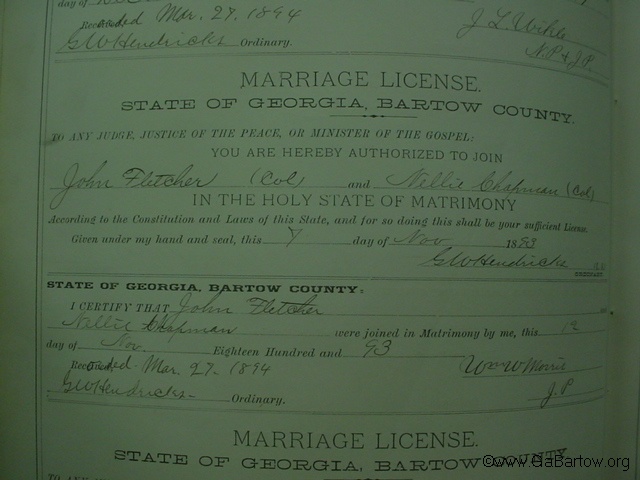 day of
Recorded Mar. 27, 1894
J L Wikle
GW Hendricks Ordinary.
N.P & J.P.
MARRIAGE LICENSE.
STATE OF GEORGIA, BARTOW COUNTY.
TO ANY JUDGE, JUSTICE OF THE PEACE, OR MINISTER OF THE GOSPEL:
YOU ARE HEREBY AUTHORIZED TO JOIN
John Fletcher (Col) and Nellie Chapman (Col)
IN THE HOLY STATE OF MATRIMONY
According to the Constitution and Laws of this State, and for so doing this shall be your sufficient License.
Given under my hand and seal, this 7 day of Nov 1893
GW Hendricks
ORDINARY.
STATE OF GEORGIA, BARTOW COUNTY:
I CERTIFY THAT John Fletcher
Nellie Chapman were joined in Matrimony by me, this 12
day of Nov. Eighteen Hundred and 93
Recorded Mar. 27. 1894 Wm W Morris
GW Hendricks Ordinary. J.P
MARRIAGE LICENSE.
STATE OF GEORGIA, BARTOW COUNTY
©www.GaBartow.org